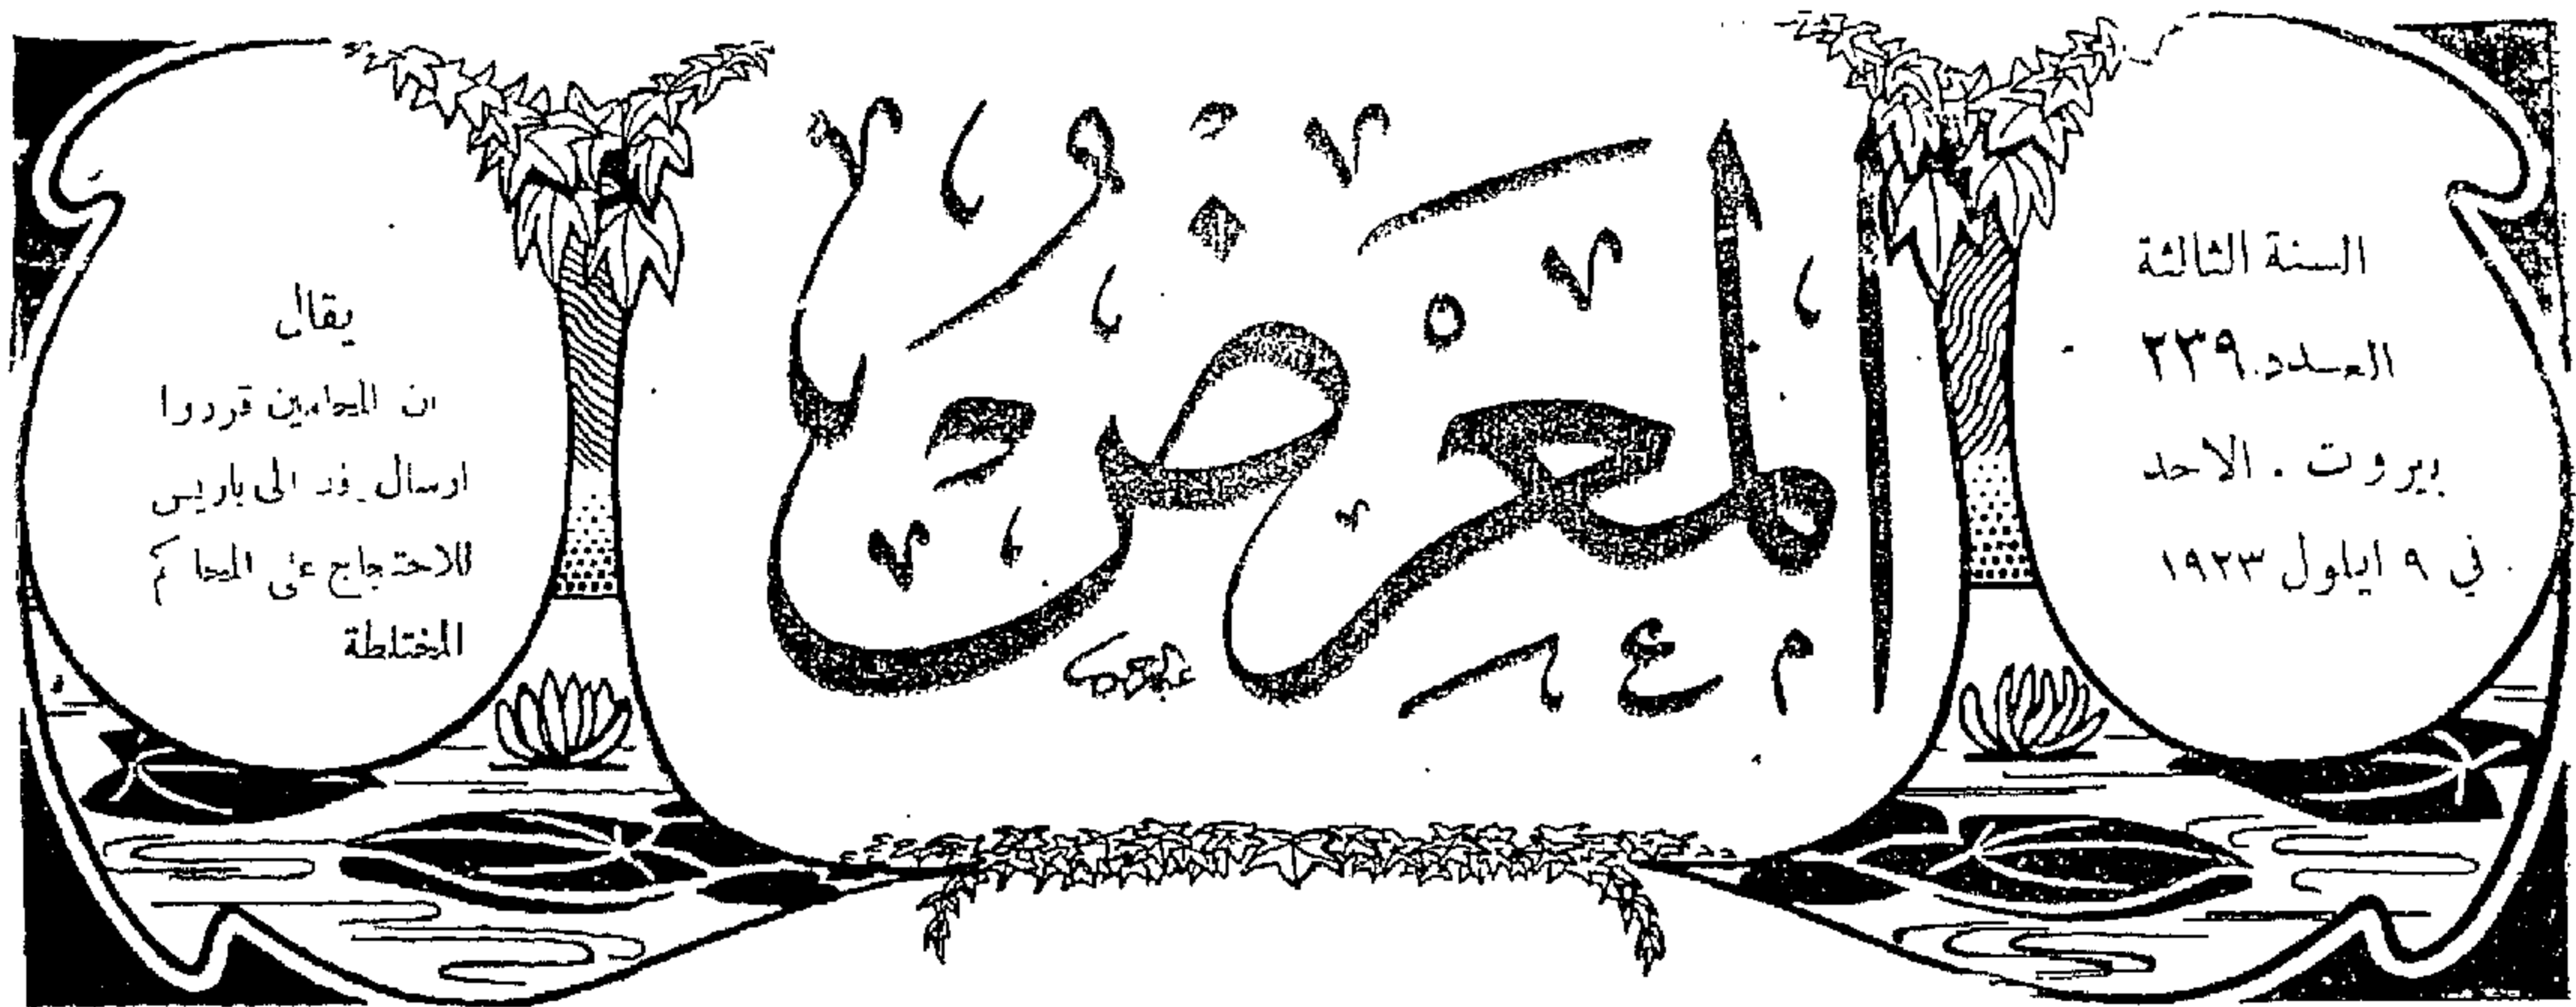 السنة الثالثة
العدد ٢٣٩
بيروت . الاحد
في ٩ ايلول ١٩٢٣
المعرض
يقال
ان المحامين قرروا
ارسال وفد الى باريس
للاحتجاج على المحاكم
المختلطة